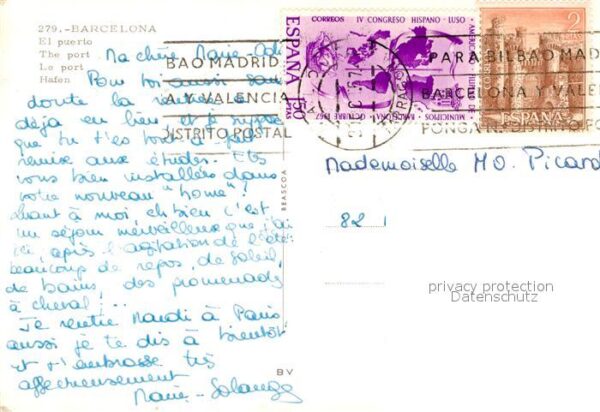 279.-BARCELONA
El puerto
The port
Le port
Hafen
Ma chère Marie-Odi
Pour toi aussi sans
doute la rentrée a
déjà eu lieu et je suppose
que tu t'es tout à fait
remise aux études. Etes
vous bien installées dans
votre nouveau "home"?
Quant à moi, eh bien c'est
un séjour merveilleux que j'ai
ici, après l'agitation de l'été:
beaucoup de repos, de soleil,
de bains, des promenades
à cheval...
Je rentre Mardi à Paris
aussi je te dis à bientôt
et t'embrasse très
affectueusement
Marie-Solange
BV
BEASCOA
BAO MADRID
A Y VALENCIA
DISTRITO POSTAL
CORREOS IV CONGRESO HISPANO-LUSO
MUNICIPIOS BARCELONA OCTUBRE 1967
ESPAÑA
1'50
PTAS
PARA BILBAO MAD
BARCELONA Y VALEN
PONGA
2
ESPAÑA
Mademoiselle MO. Picard
82
privacy protection
Datenschutz